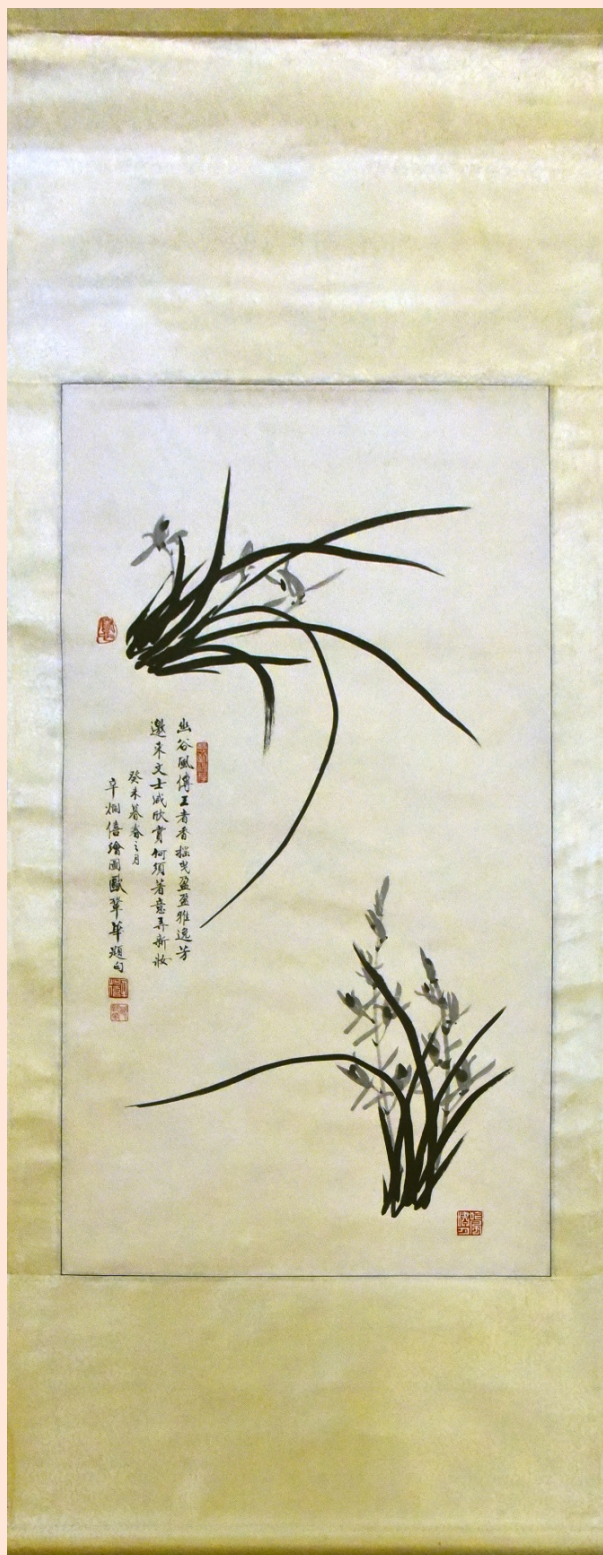 幽谷風傳王者香搖曳盈盈雅逸芳
邀來文士咸欣賞何須著意弄新妝
癸未暮春之月
辛炯僖繪圖歐鞏華題句